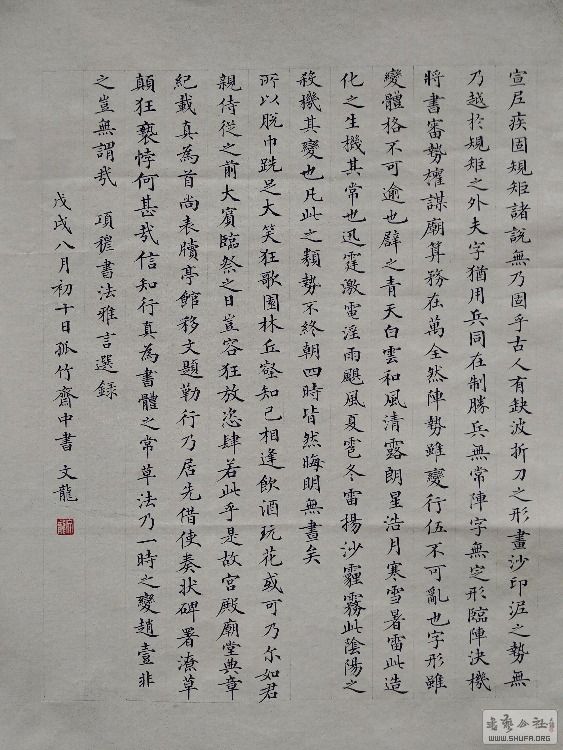 宣尼疾固規矩諸說無乃固乎古人有缺波折刀之形畫沙印泥之勢無
乃越於規矩之外夫字猶用兵同在制勝兵無常陣字無定形臨陣決機
將書審勢權謀廟算務在萬全然陣勢雖變行伍不可亂也字形雖
變體格不可逾也譬之青天白雲和風清露朗星浩月寒雪暑雷此造
化之生機其常也迅霆激電淫雨颶風夏雹冬雷揚沙霾霧此陰陽之
殺機其變也凡此之類勢不終朝四時皆然晦明無晝矣
所以脫巾跣足大笑狂歌園林丘壑知己相逢飲酒玩花或可乃尔如君
親侍從之前大賓臨祭之日豈容狂放恣肆若此乎是故宮殿廟堂典章
紀載真為首尚表牘亭館移文題勒行乃居先借使奏狀碑署潦草
顛狂褻悖何甚哉信知行真為書體之常草法乃一時之變趙壹非
之豈無謂哉 項穆書法雅言選録
戊戌八月初十日孤竹齋中書 文龍
书艺公社
WWW.SHUFA.ORG